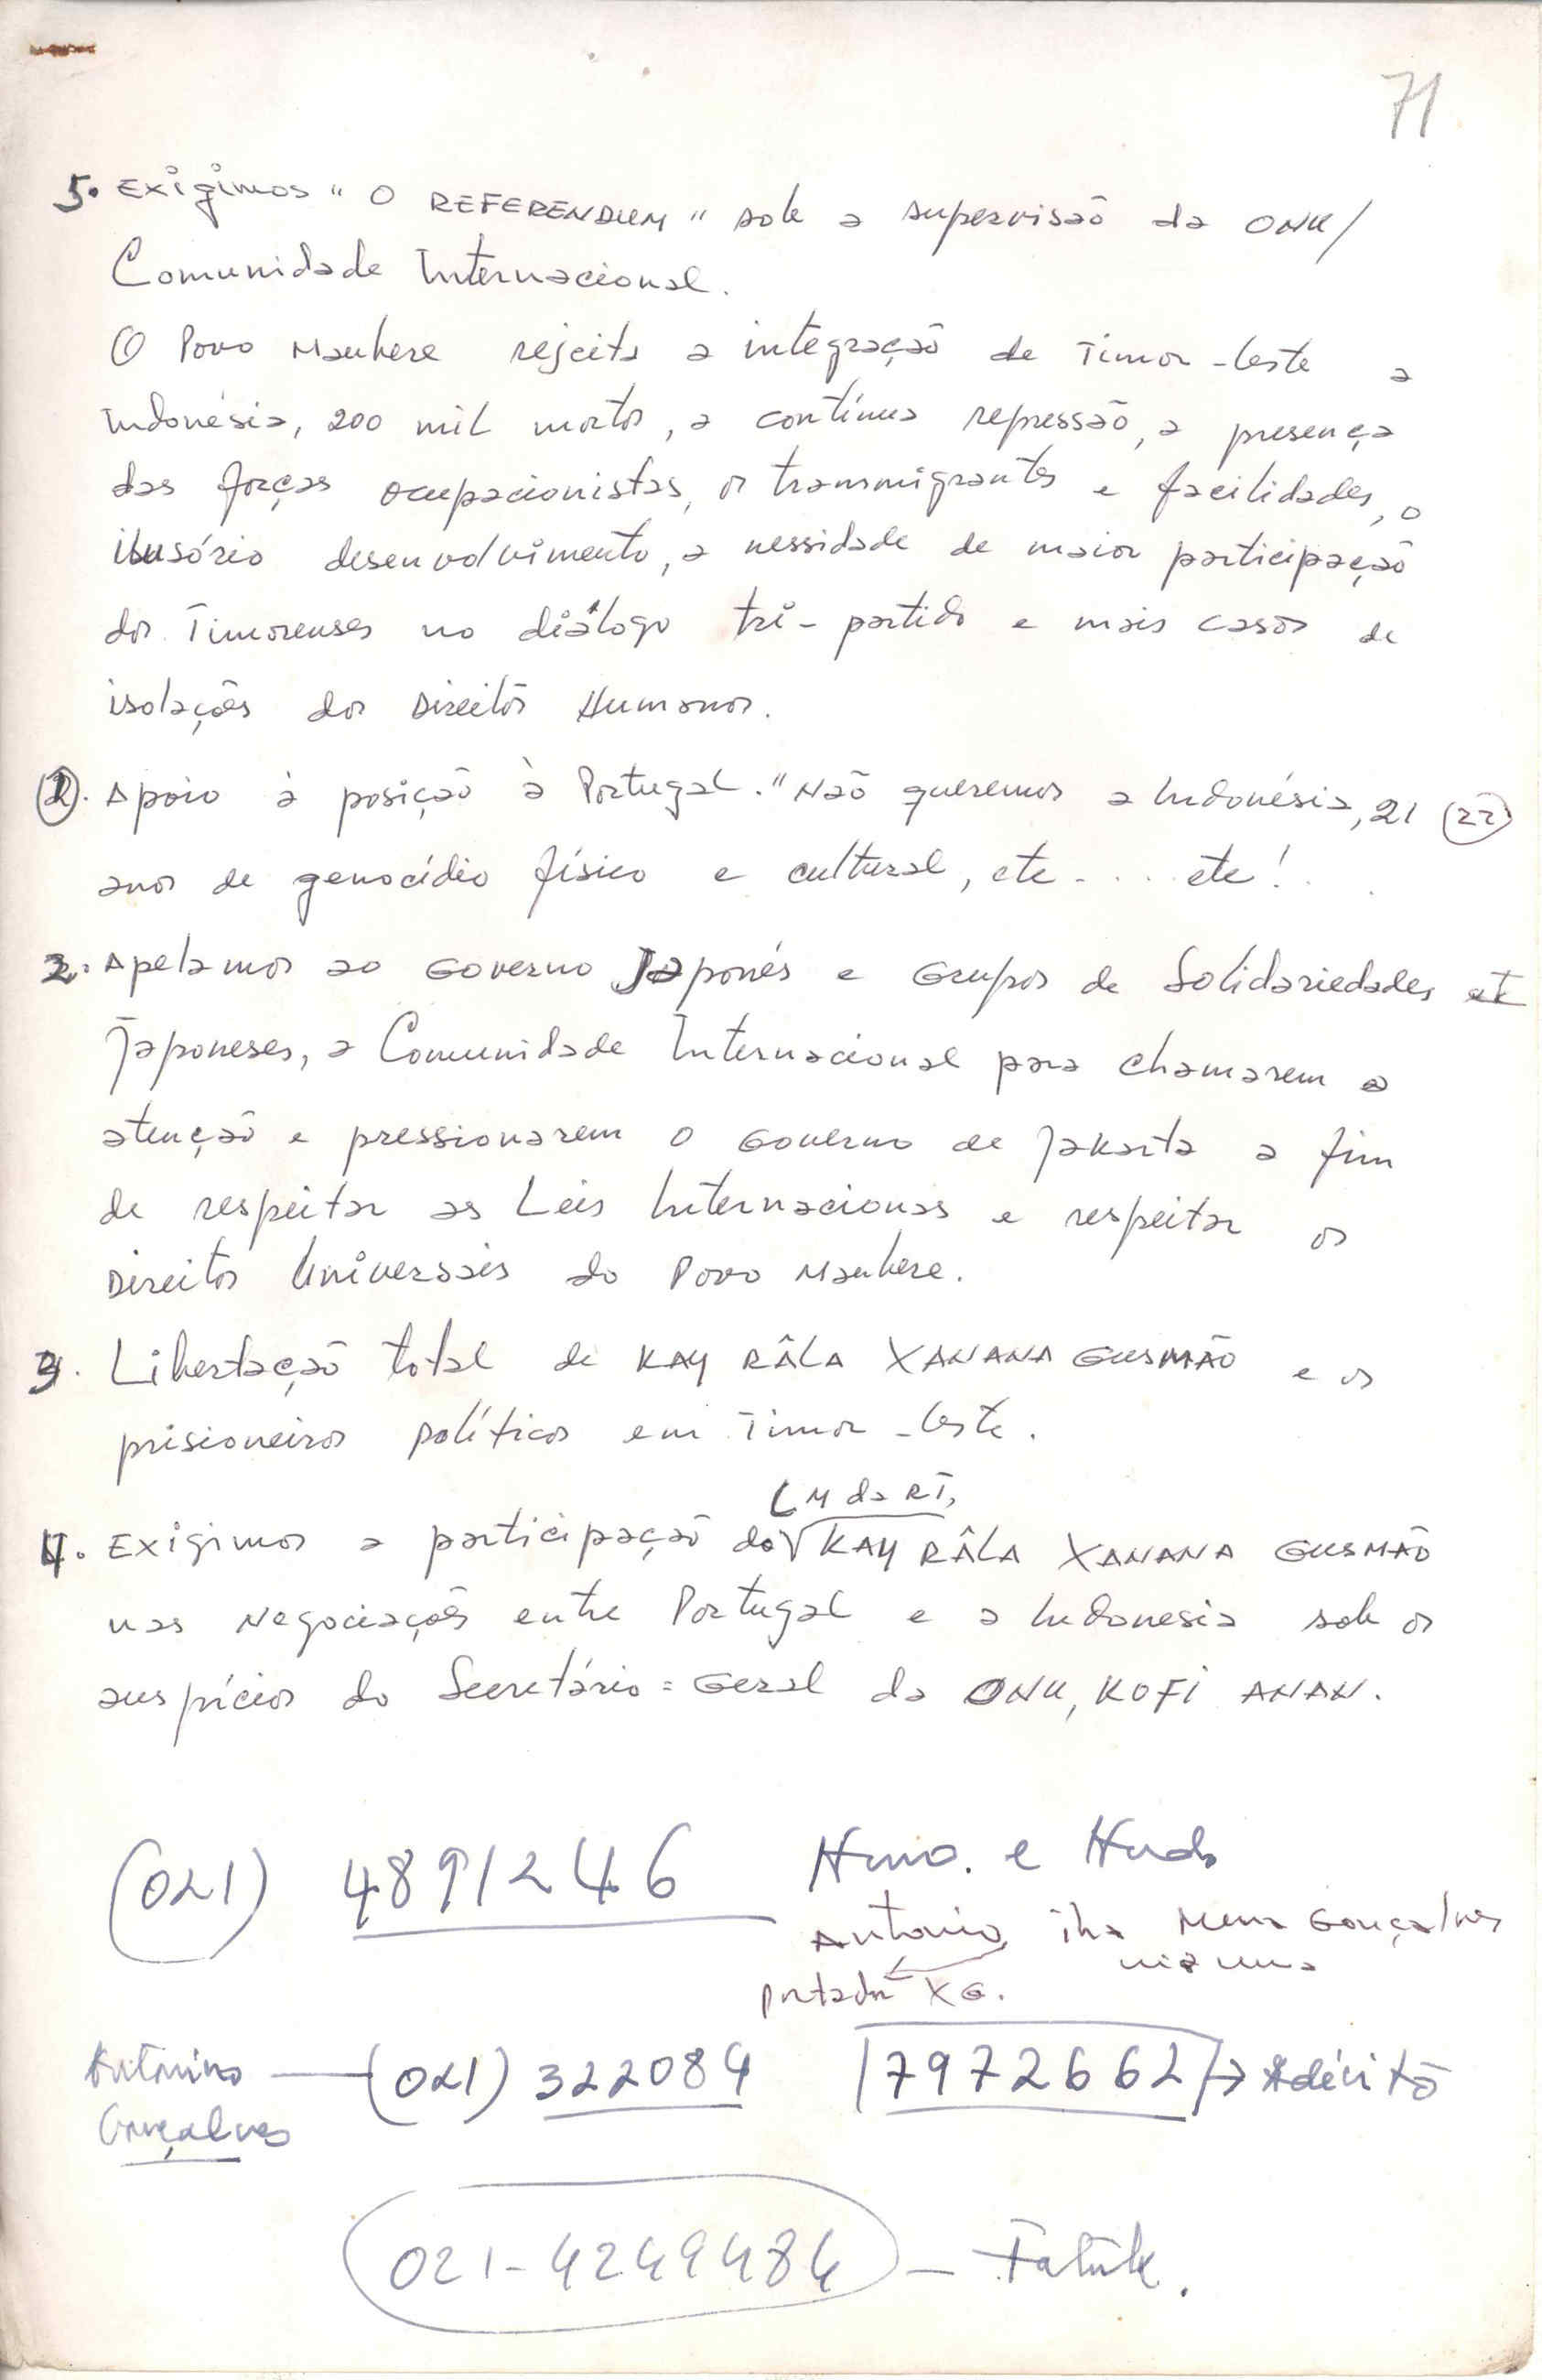 71
5. Exigimos "O REFERENDUM" sob a supervisão da ONU/
Comunidade Internacional.
O Povo Maubere rejeita a integração de Timor-Leste a
Indonésia, 200 mil mortos, a contínua repressão, a presença
das forças ocupacionistas, os transmigrantes e facilidades, o
ilusório desenvolvimento, a nessidade de maior participação
dos Timorenses no diálogo tri-partido e mais casos de
isolações dos Direitos Humanos.
1. Apoio à posição à Portugal. "Não queremos a Indonésia, 21 (22)
anos de genocídio físico e cultural, etc.... etc!
2. Apelamos ao Governo Japonés e Grupos de Solidariedades
Japoneses, a Comunidade Internacional para chamarem a
atenção e pressionarem o Governo de Jakarta a fim
de respeitar as Leis Internacionas e respeitar os
Direitos Universais do Povo Maubere.
3. Libertação total de KAY RÂLA XANANA GUSMÃO e os
prisioneiros políticos em Timor-Leste.
LM da RT,
4. Exigimos a participação do KAY RÂLA XANANA GUSMÃO
nas Negociações entre Portugal e a Indonesia sob os
auspícios do Secretário=Geral da ONU, KOFI ANAN.
(021) 4891246 e
Antonio, Gonçalves
portador XG.
Antonino (021) 322084 7972662 → Adérito
Gonçalves
021-4249484 –